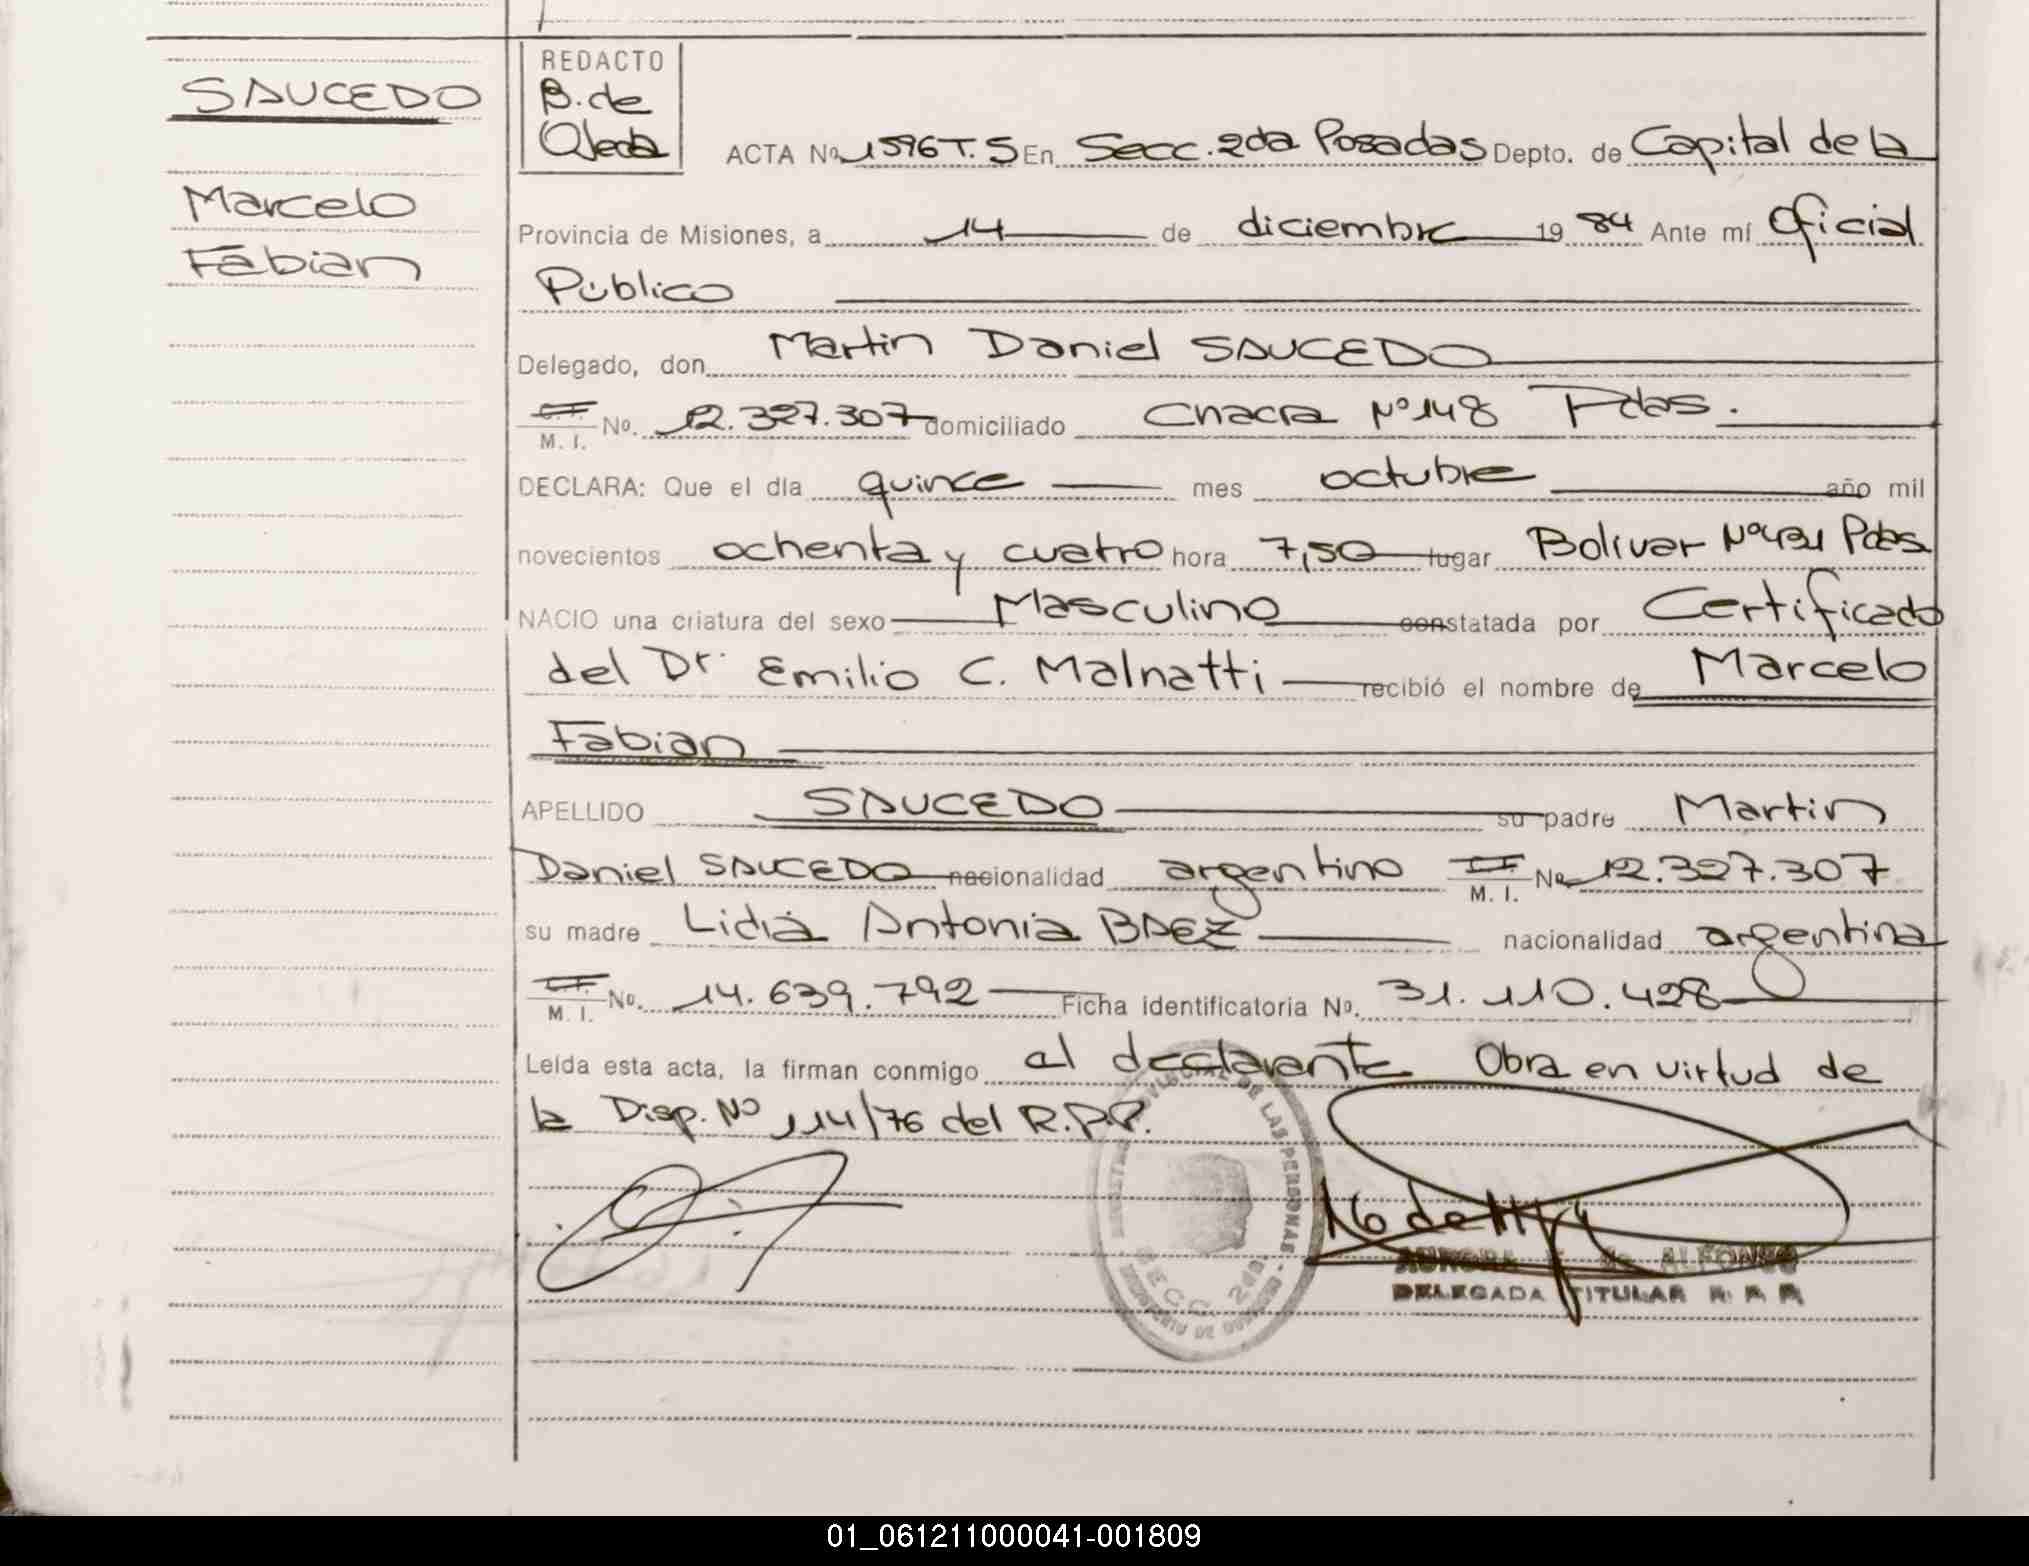 SAUCEDO
Marcelo
Fabian
REDACTO
B. de
Ojeda
ACTA No. 1596 T. 5 En Secc. 2da Posadas Depto. de Capital de la
Provincia de Misiones, a 14 de diciembre 19 84 Ante mí Oficial
Público
Delegado, don Martin Daniel SAUCEDO
C.I. M. I. No. 12.327.307 domiciliado Chacra Nº 148 Pdas.
DECLARA: Que el día quince mes octubre año mil
novecientos ochenta y cuatro hora 7,50 lugar Bolivar Nº 431 Pdas.
NACIO una criatura del sexo Masculino constatada por Certificado
del Dr. Emilio C. Malnatti recibió el nombre de Marcelo
Fabian
APELLIDO SAUCEDO su padre Martin
Daniel SAUCEDO nacionalidad argentino C.I. M. I. No 12.327.307
su madre Lidia Antonia BAEZ nacionalidad argentina
C.I. M. I. No. 14.639.792 Ficha identificatoria No. 31.110.428
Leída esta acta, la firman conmigo el declarante Obra en virtud de
la Disp. Nº 114/76 del R.P.P.
REGISTRO PROVINCIAL DE LAS PERSONAS
SECC. 2da.
AURORA de ALFONSO
DELEGADA TITULAR R. P. P.
01_061211000041-001809